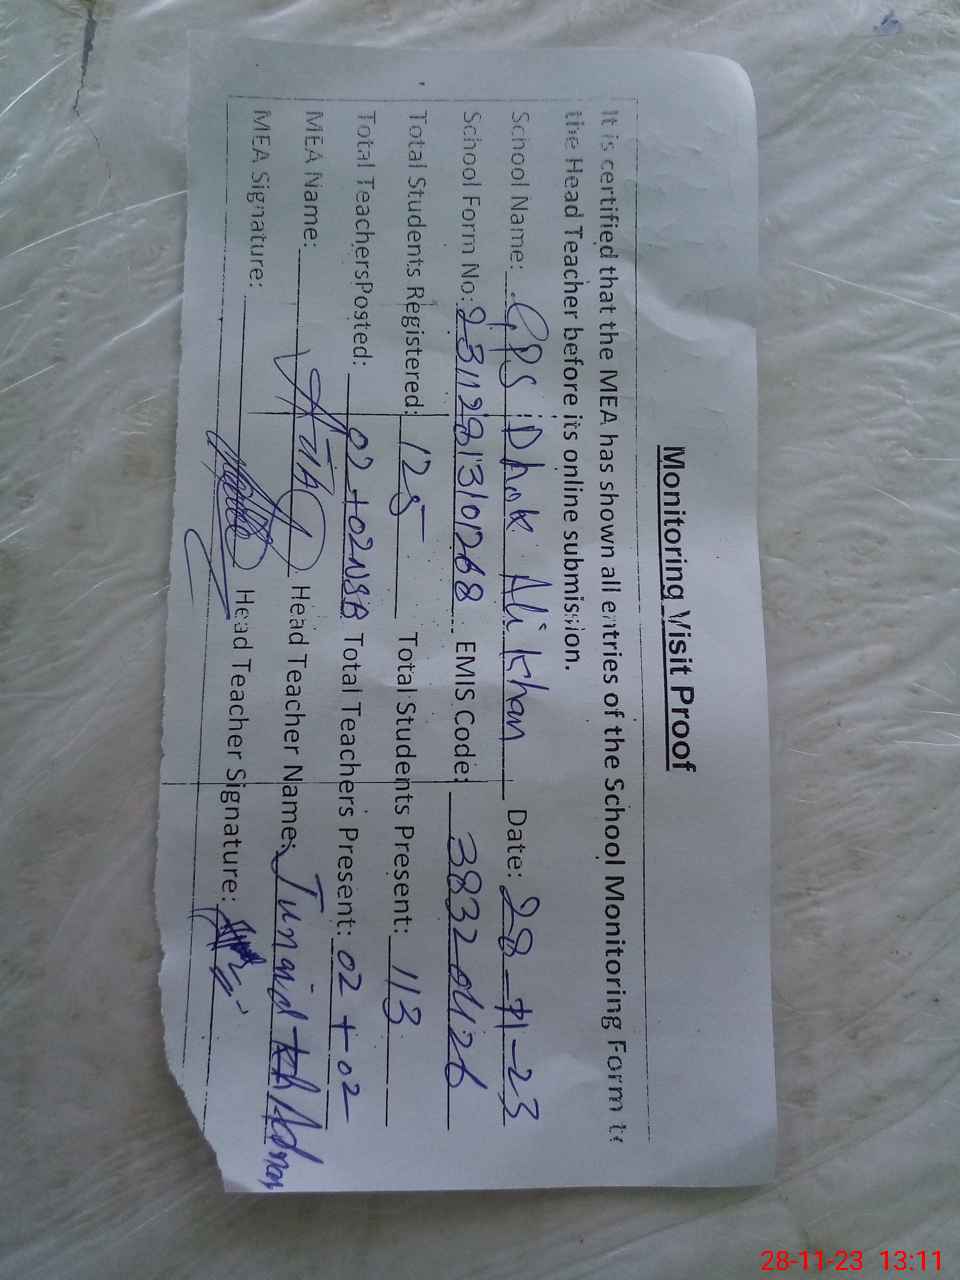 Monitoring Visit Proof
It is certified that the MEA has shown all entries of the School Monitoring Form to
the Head Teacher before its online submission.
School Name: GPS Dhok Ali Khan Date: 28-11-23
School Form No: EMIS Code:
Total Students Registered: 125 Total Students Present: 113
Total TeachersPosted: 02+02NSB Total Teachers Present: 02+02
MEA Name: Head Teacher Name: Junaid
MEA Signature: Head Teacher Signature:
28-11-23 13:11